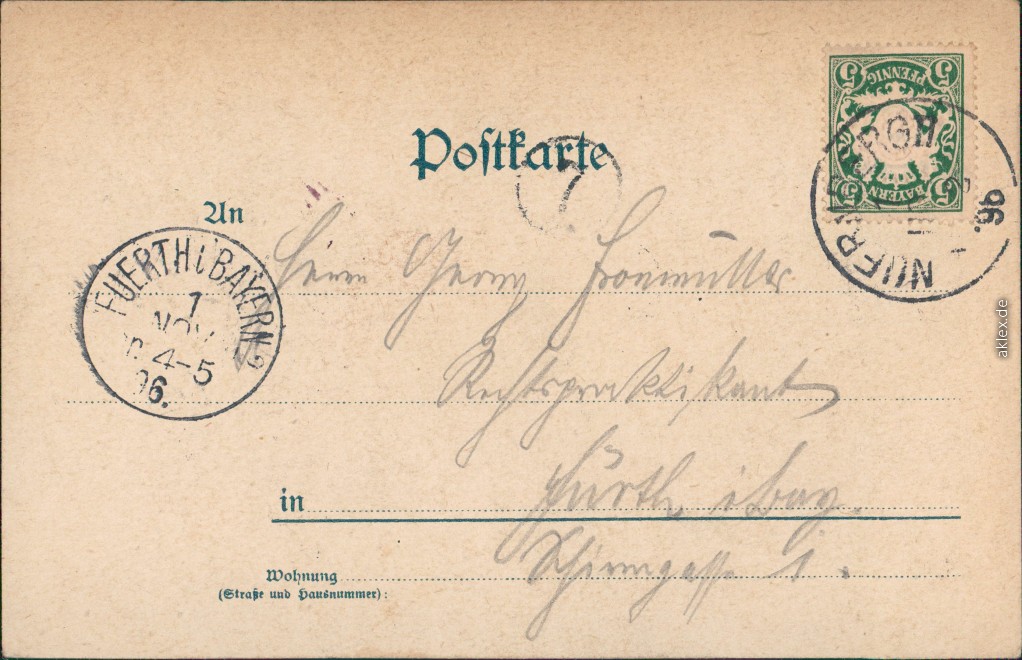 5 5
PFENNIG
BAYERN
5 5
NUERNBERG II
96.
Postkarte
7
An
FUERTH i. BAYERN 2
1
NOV
4-5
96.
Herrn Georg Fronmüller
Rechtspraktikant
in Fürth i Bay.
Wohnung
(Straße und Hausnummer): 1.
aklex.de